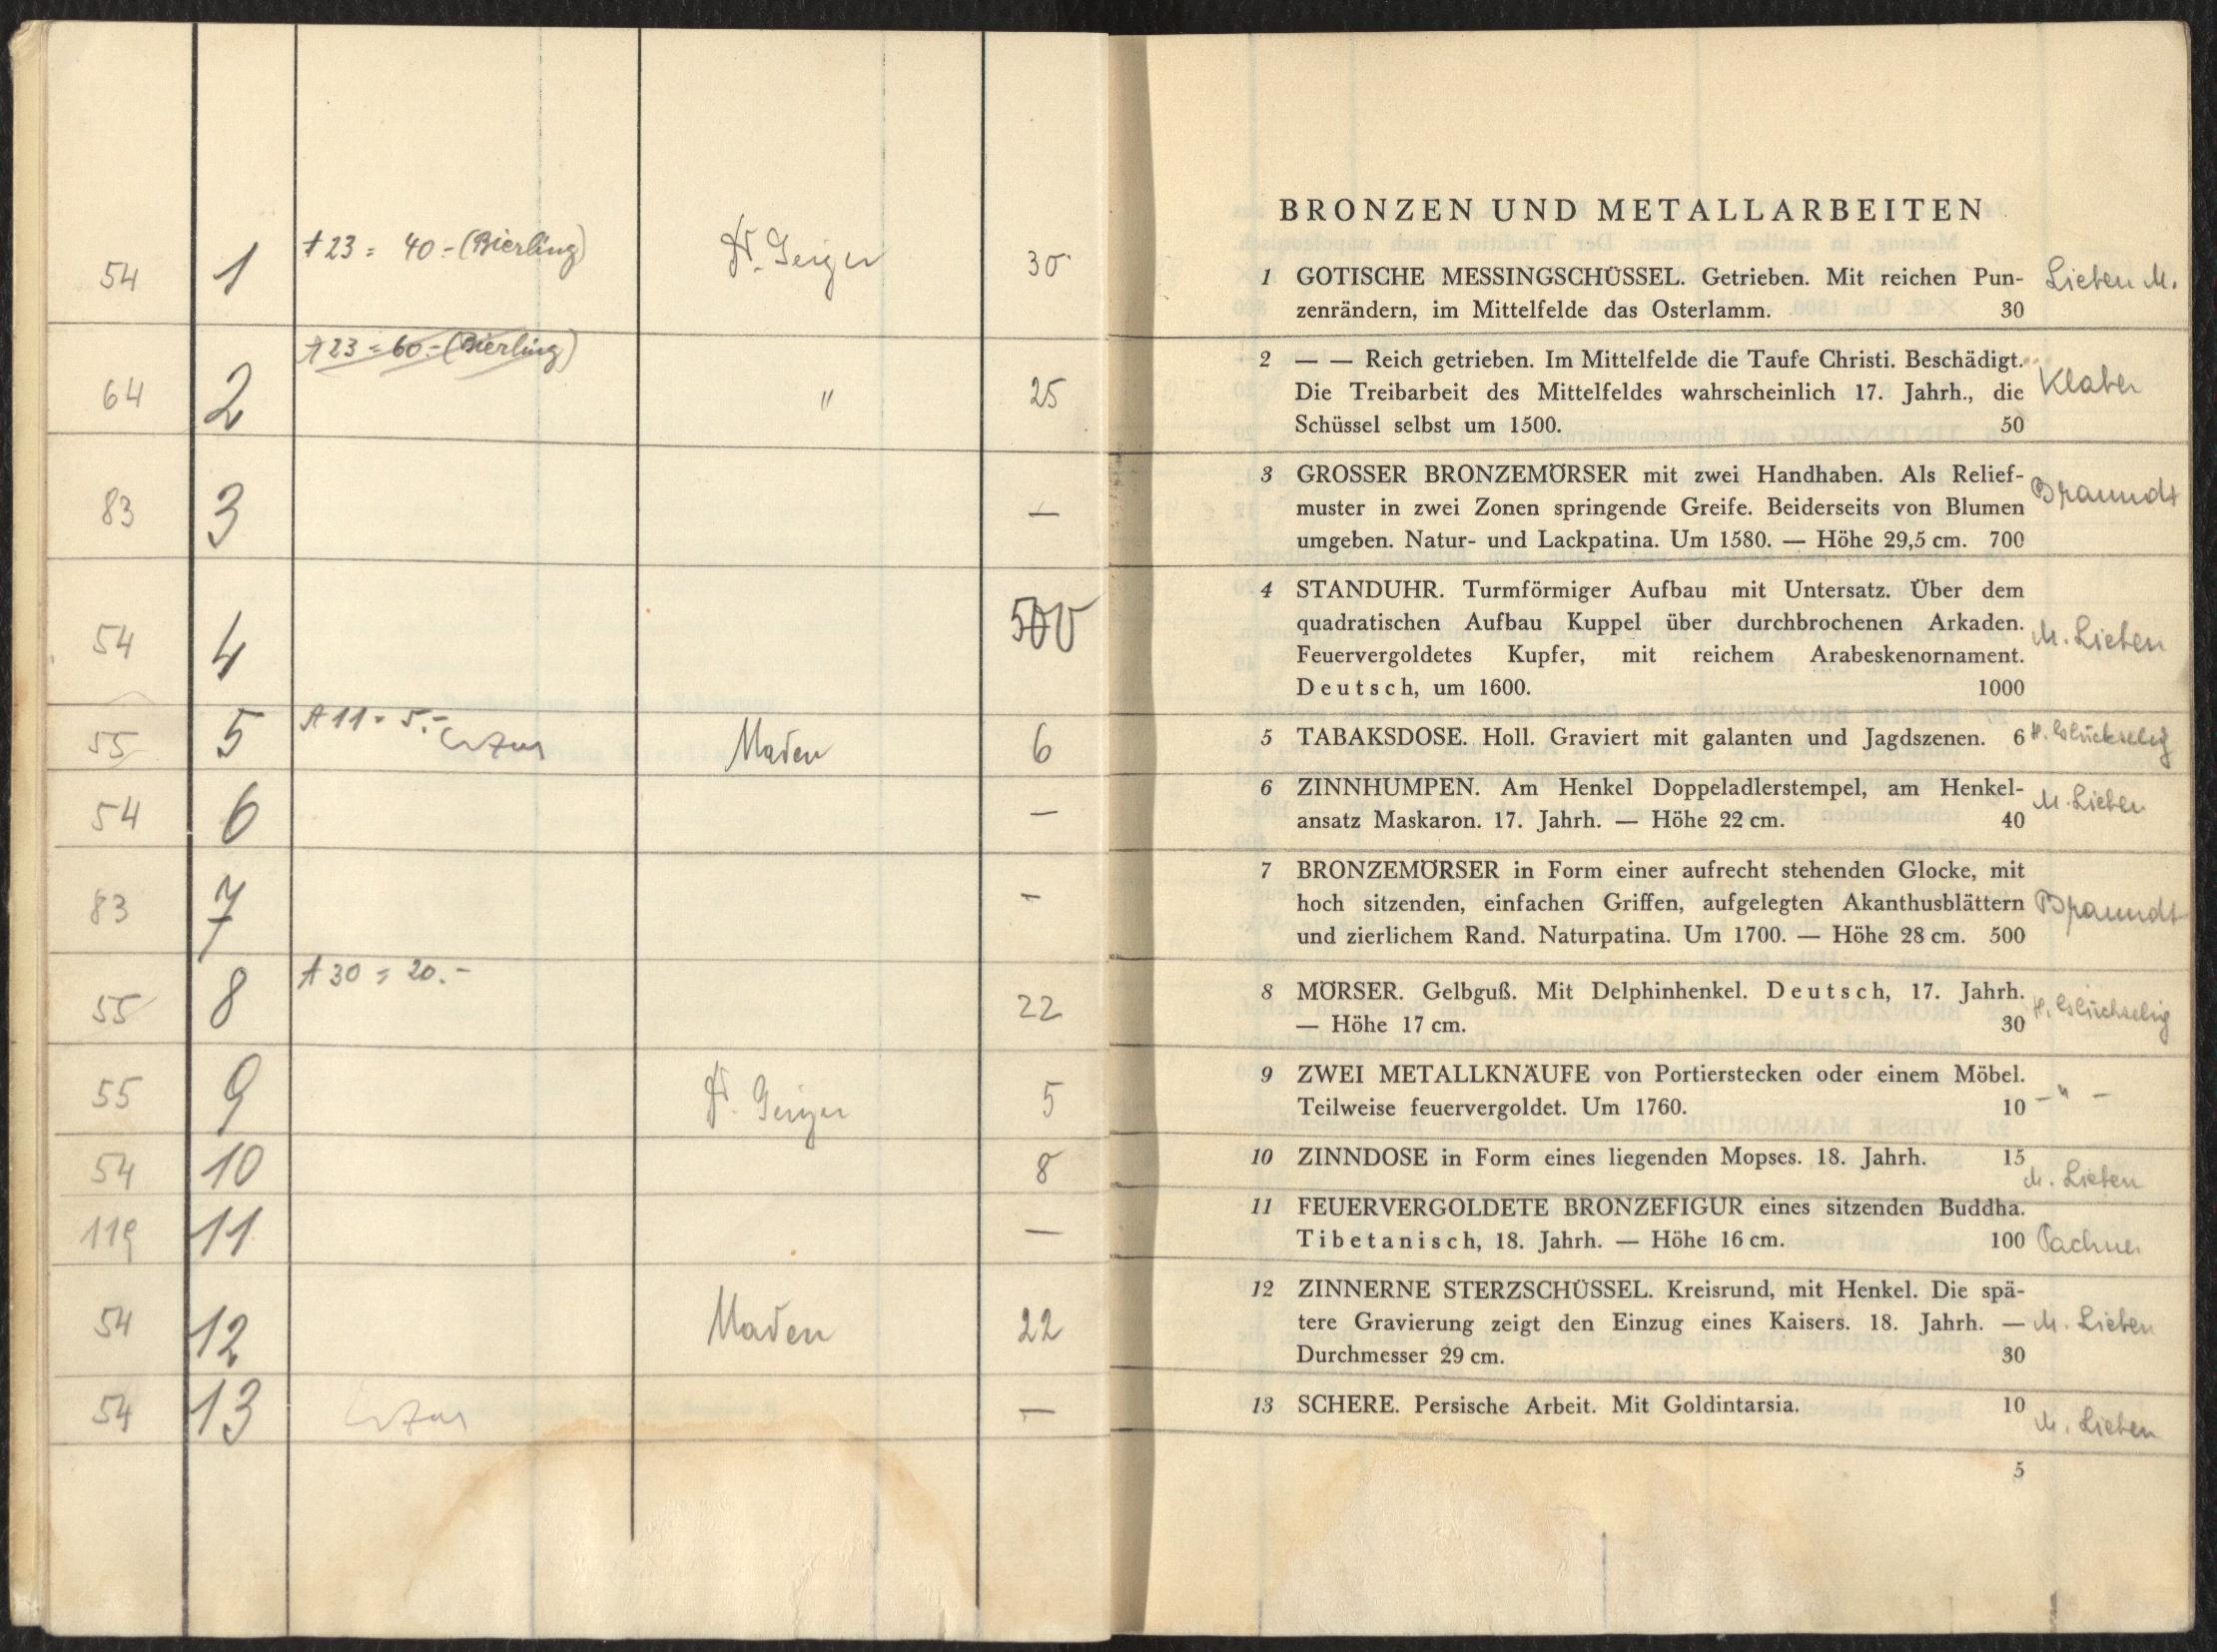 54 1 A 23 = 40.- (Bierling) Dr. Geiger 30
64 2 A 23 = 60.- (Bierling) " 25
83 3 —
54 4 500
55 5 A 11 = 5.- Maden 6
54 6 —
83 7 -
55 8 A 30 = 20.- 22
55 9 Dr. Geiger 5
54 10 8
119 11 —
54 12 Maden 22
54 13 —
BRONZEN UND METALLARBEITEN
1 GOTISCHE MESSINGSCHÜSSEL. Getrieben. Mit reichen Pun- Lieben M.
zenrändern, im Mittelfelde das Osterlamm. 30
2 — — Reich getrieben. Im Mittelfelde die Taufe Christi. Beschädigt.
Die Treibarbeit des Mittelfeldes wahrscheinlich 17. Jahrh., die Klaber
Schüssel selbst um 1500. 50
3 GROSSER BRONZEMÖRSER mit zwei Handhaben. Als Relief- Braundt
muster in zwei Zonen springende Greife. Beiderseits von Blumen
umgeben. Natur- und Lackpatina. Um 1580. — Höhe 29,5 cm. 700
4 STANDUHR. Turmförmiger Aufbau mit Untersatz. Über dem
quadratischen Aufbau Kuppel über durchbrochenen Arkaden. M. Lieben
Feuervergoldetes Kupfer, mit reichem Arabeskenornament.
Deutsch, um 1600. 1000
5 TABAKSDOSE. Holl. Graviert mit galanten und Jagdszenen. 6 H. Glückselig
6 ZINNHUMPEN. Am Henkel Doppeladlerstempel, am Henkel- M. Lieben
ansatz Maskaron. 17. Jahrh. — Höhe 22 cm. 40
7 BRONZEMÖRSER in Form einer aufrecht stehenden Glocke, mit
hoch sitzenden, einfachen Griffen, aufgelegten Akanthusblättern Braundt
und zierlichem Rand. Naturpatina. Um 1700. — Höhe 28 cm. 500
8 MÖRSER. Gelbguß. Mit Delphinhenkel. Deutsch, 17. Jahrh. H. Glückselig
— Höhe 17 cm. 30
9 ZWEI METALLKNÄUFE von Portierstecken oder einem Möbel.
Teilweise feuervergoldet. Um 1760. 10 - " -
10 ZINNDOSE in Form eines liegenden Mopses. 18. Jahrh. 15
M. Lieben
11 FEUERVERGOLDETE BRONZEFIGUR eines sitzenden Buddha.
Tibetanisch, 18. Jahrh. — Höhe 16 cm. 100 Pachner
12 ZINNERNE STERZSCHÜSSEL. Kreisrund, mit Henkel. Die spä-
tere Gravierung zeigt den Einzug eines Kaisers. 18. Jahrh. — M. Lieben
Durchmesser 29 cm. 30
13 SCHERE. Persische Arbeit. Mit Goldintarsia. 10
M. Lieben
5